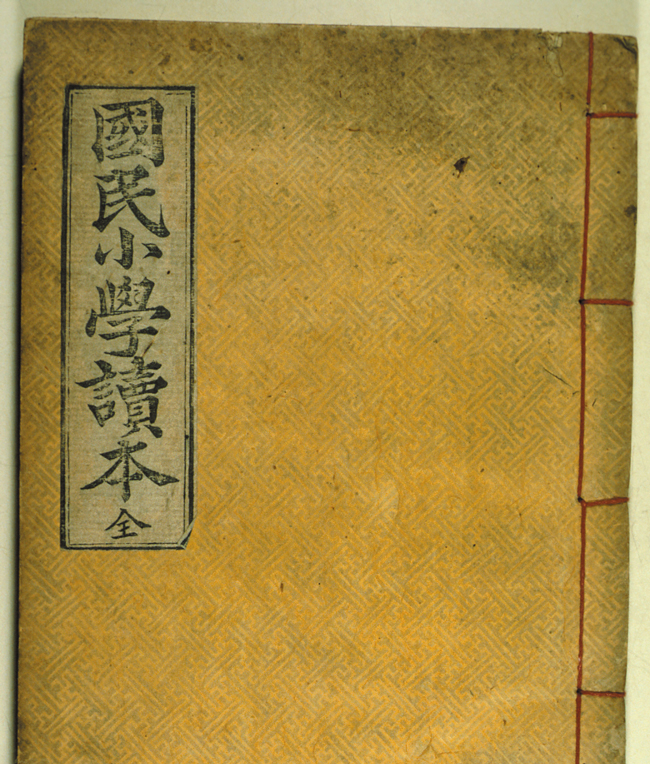 國民小學讀本全